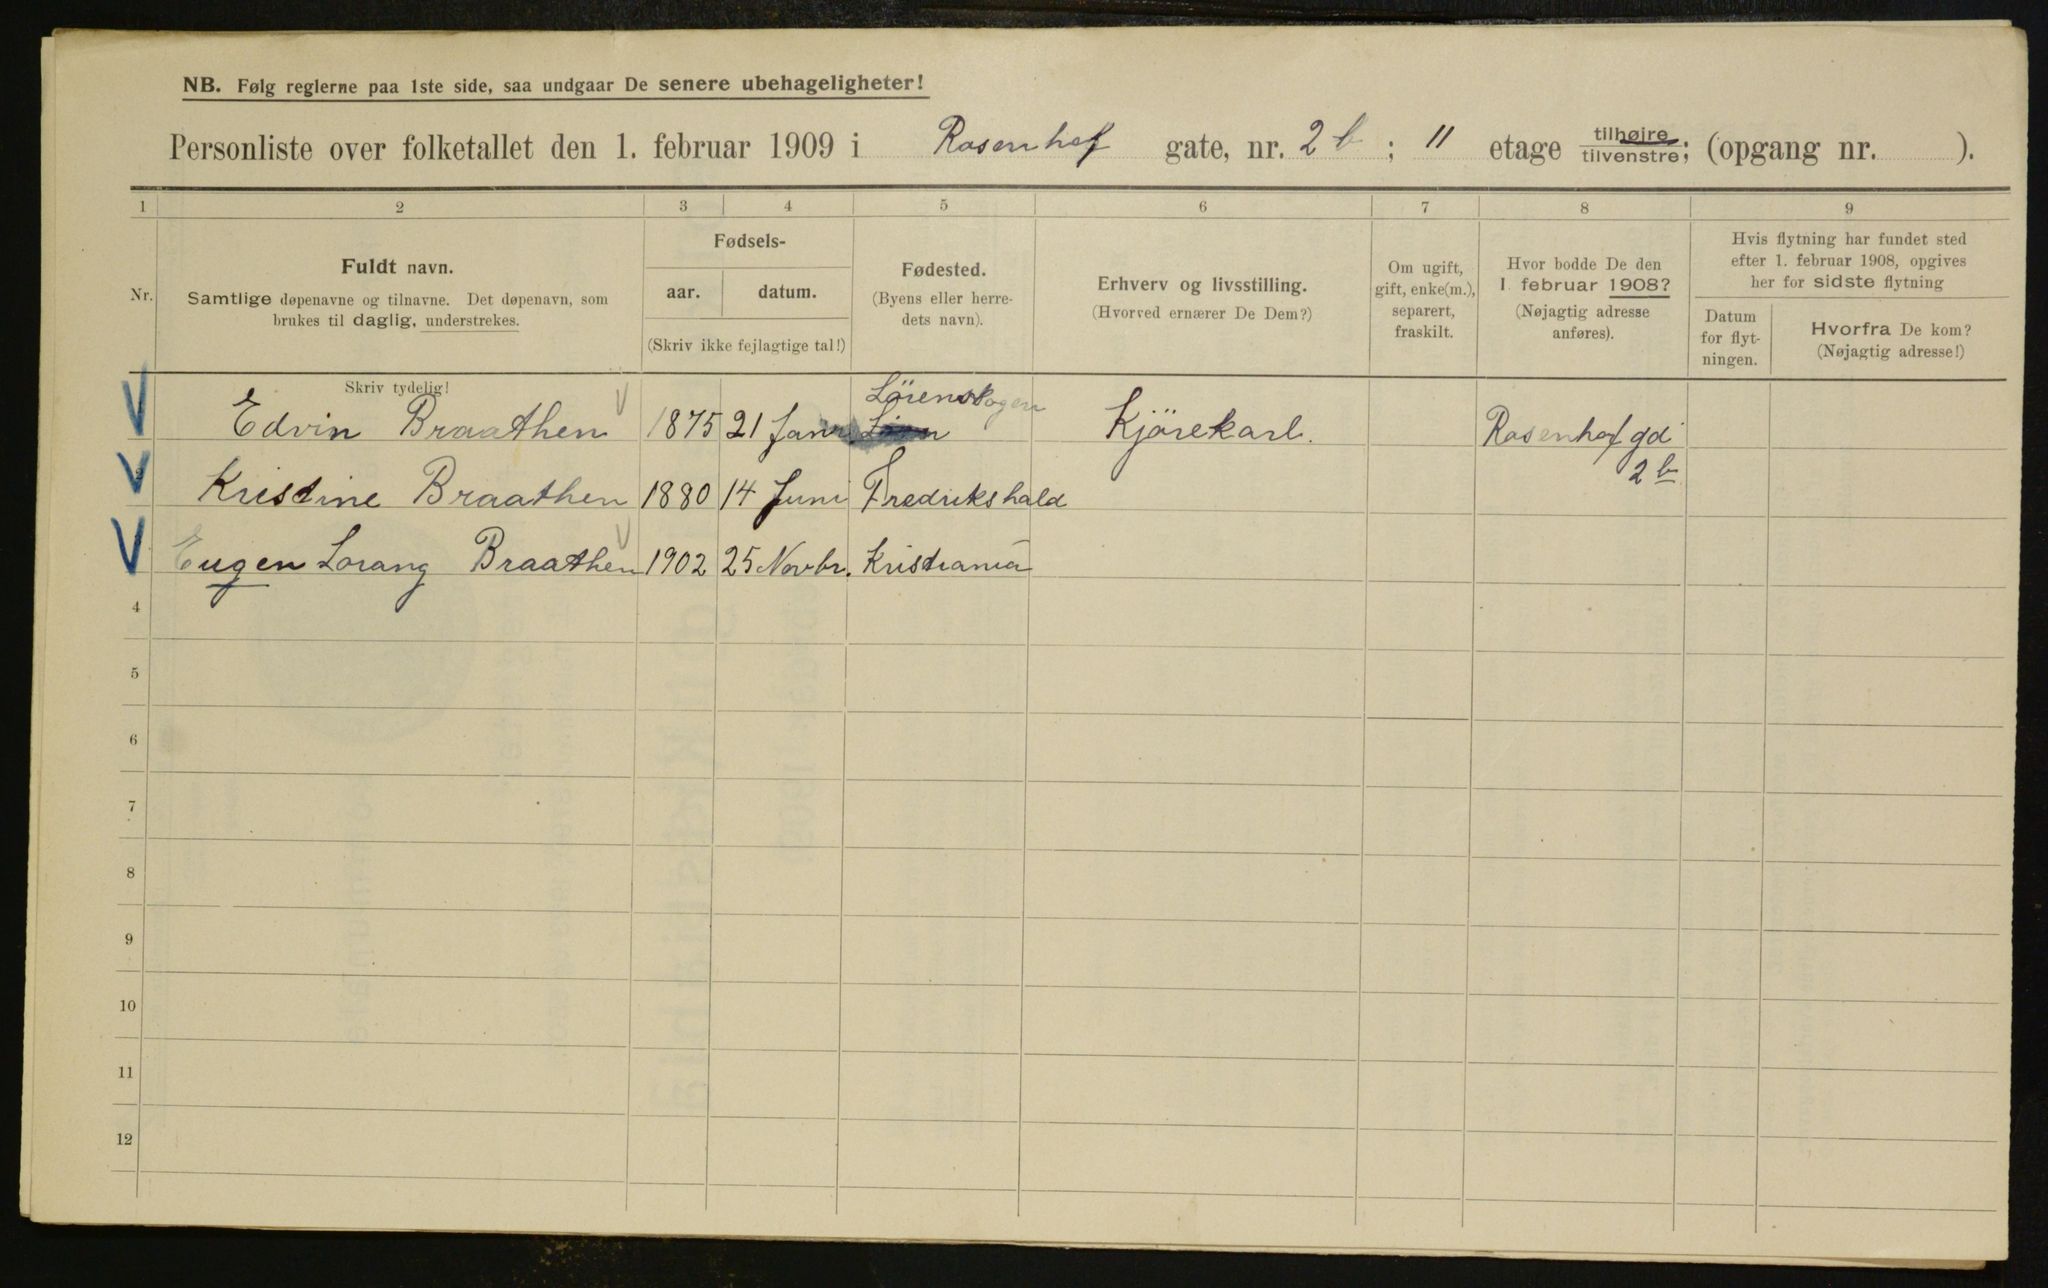 NB. Følg reglerne paa 1ste side, saa undgaar De senere ubehageligheter!
Personliste over folketallet den 1. februar 1909 i Rosenhof gate, nr. 2 b ; 11 etage tilhøire/tilvenstre; (opgang nr. ).
1 2 3 4 5 6 7 8 9
Nr.
Fuldt navn.
Samtlige døpenavne og tilnavne. Det døpenavn, som
brukes til daglig, understrekes.
Fødsels-
aar. datum.
(Skriv ikke fejlagtige tal!)
Fødested.
(Byens eller herre-
dets navn).
Erhverv og livsstilling.
(Hvorved ernærer De Dem?)
Om ugift,
gift, enke(m.),
separert,
fraskilt.
Hvor bodde De den
1. februar 1908?
(Nøjagtig adresse
anføres).
Hvis flytning har fundet sted
efter 1. februar 1908, opgives
her for sidste flytning
Datum
for flyt-
ningen.
Hvorfra De kom?
(Nøjagtig adresse!)
Skriv tydelig!
Lörenskogen
Edvin Braathen 1875 21 Janr. Kjörekarl. Rosenhof gd
2 b
Kristine Braathen 1880 14 Juni Fredrikshald
Eugen Lorang Braathen 1902 25 Novbr. Kristiania
4
5
6
7
8
9
10
11
12